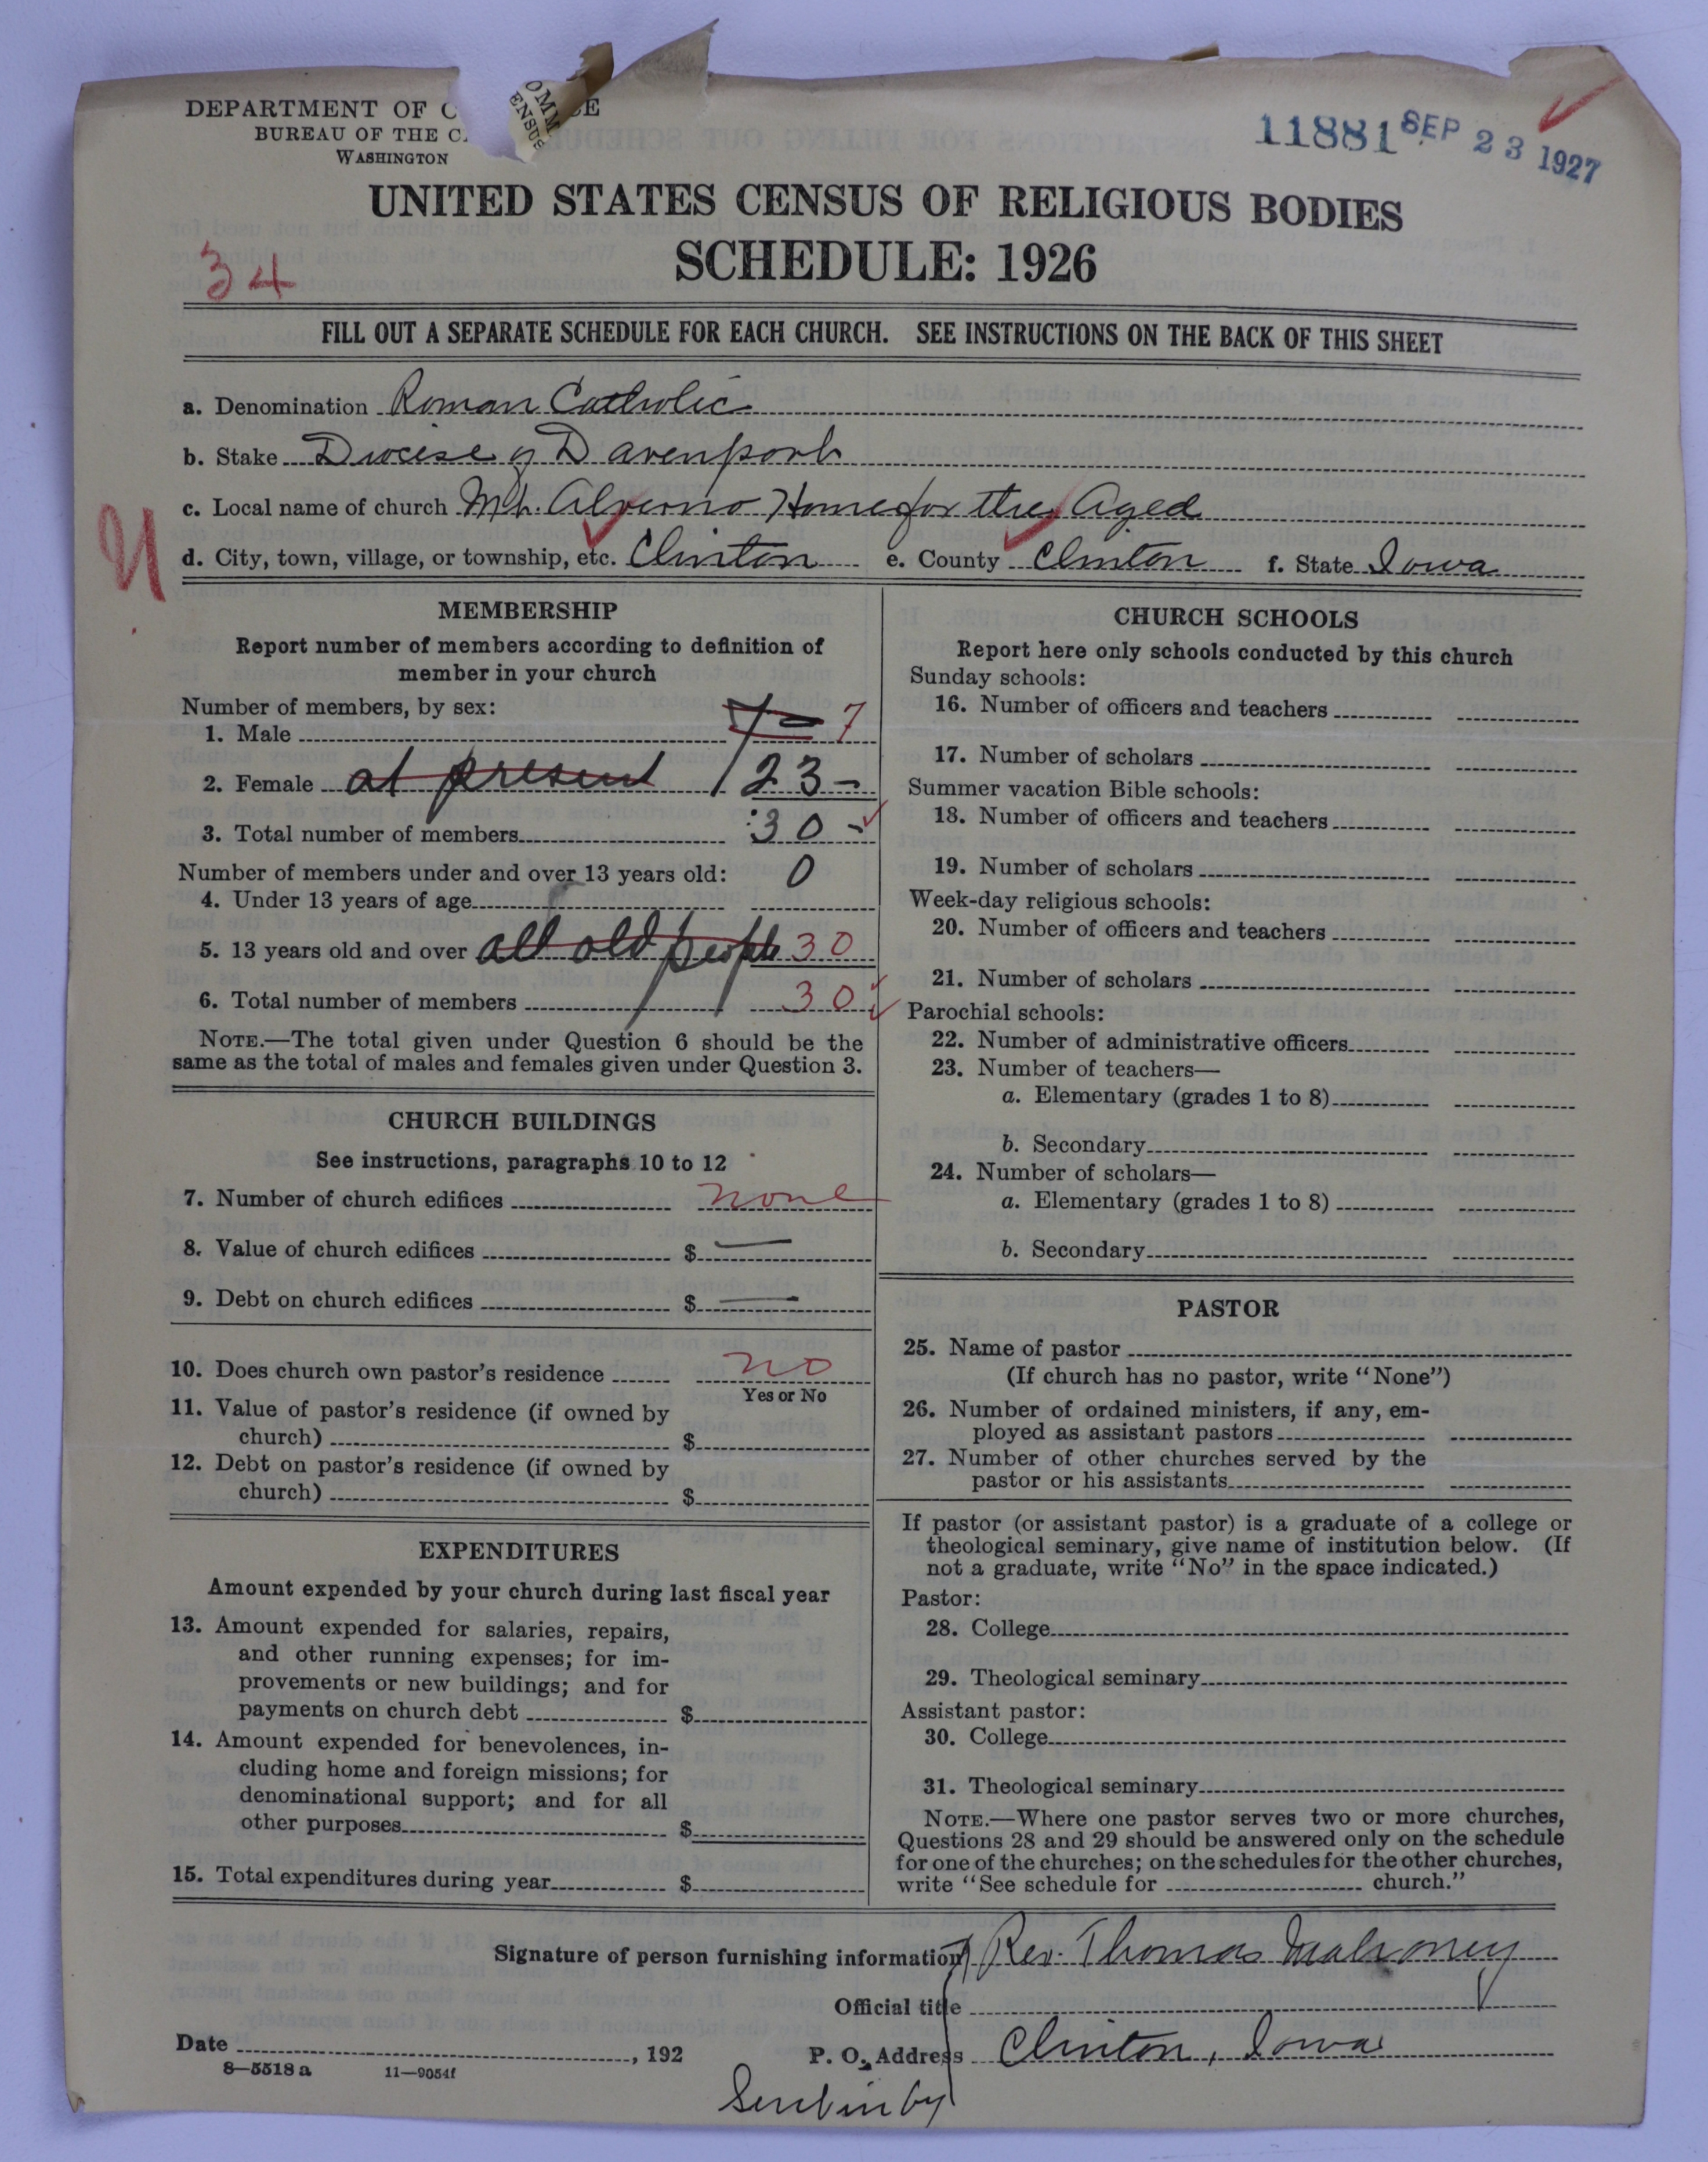 DEPARTMENT OF C CE
OMM
ENSUS
BUREAU OF THE C
WASHINGTON
11881 SEP 23 1927
UNITED STATES CENSUS OF RELIGIOUS BODIES
SCHEDULE: 1926
34
FILL OUT A SEPARATE SCHEDULE FOR EACH CHURCH. SEE INSTRUCTIONS ON THE BACK OF THIS SHEET
a. Denomination Roman Catholic
b. Stake Diocese of Davenport
c. Local name of church Mt. Alverno Home for the Aged
d. City, town, village, or township, etc. Clinton e. County Clinton f. State Iowa
MEMBERSHIP
Report number of members according to definition of
member in your church
Number of members, by sex:
1. Male 7 - 7
2. Female at present 23 -
3. Total number of members 30 -
Number of members under and over 13 years old: 0
4. Under 13 years of age
5. 13 years old and over all old people 30
6. Total number of members 30
NOTE.—The total given under Question 6 should be the
same as the total of males and females given under Question 3.
CHURCH BUILDINGS
See instructions, paragraphs 10 to 12
7. Number of church edifices none
8. Value of church edifices $ —
9. Debt on church edifices $ —
10. Does church own pastor's residence no
Yes or No
11. Value of pastor's residence (if owned by
church) $
12. Debt on pastor's residence (if owned by
church) $
EXPENDITURES
Amount expended by your church during last fiscal year
13. Amount expended for salaries, repairs,
and other running expenses; for im-
provements or new buildings; and for
payments on church debt $
14. Amount expended for benevolences, in-
cluding home and foreign missions; for
denominational support; and for all
other purposes $
15. Total expenditures during year $
CHURCH SCHOOLS
Report here only schools conducted by this church
Sunday schools:
16. Number of officers and teachers
17. Number of scholars
Summer vacation Bible schools:
18. Number of officers and teachers
19. Number of scholars
Week-day religious schools:
20. Number of officers and teachers
21. Number of scholars
Parochial schools:
22. Number of administrative officers
23. Number of teachers—
a. Elementary (grades 1 to 8)
b. Secondary
24. Number of scholars—
a. Elementary (grades 1 to 8)
b. Secondary
PASTOR
25. Name of pastor
(If church has no pastor, write "None")
26. Number of ordained ministers, if any, em-
ployed as assistant pastors
27. Number of other churches served by the
pastor or his assistants
If pastor (or assistant pastor) is a graduate of a college or
theological seminary, give name of institution below. (If
not a graduate, write "No" in the space indicated.)
Pastor:
28. College
29. Theological seminary
Assistant pastor:
30. College
31. Theological seminary
NOTE.—Where one pastor serves two or more churches,
Questions 28 and 29 should be answered only on the schedule
for one of the churches; on the schedules for the other churches,
write "See schedule for church."
Signature of person furnishing information Rev. Thomas Mahoney
Official title
Date , 192 P. O. Address Clinton, Iowa
8—5518 a 11—9054f
Sent in by